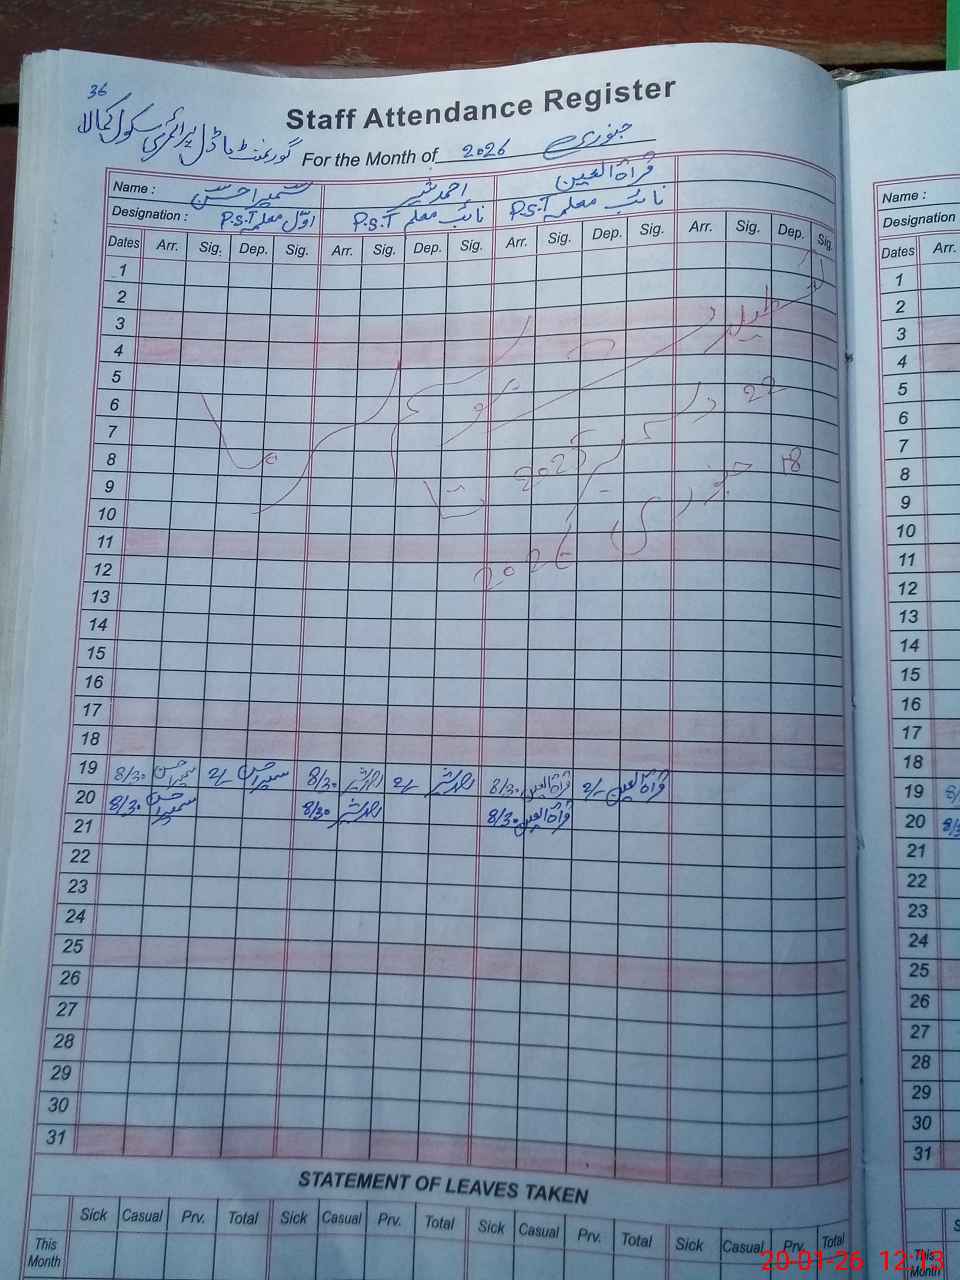 36
گورنمنٹ ماڈل پرائمری سکول کمالا
Staff Attendance Register
For the Month of 2026 جنوری
Name : سمیرا حسن احمد شیر قراۃ العین
Designation : اوّل معلمہ P.S.T نائب معلم P.S.T نائب معلمہ P.S.T
Dates Arr. Sig. Dep. Sig. Arr. Sig. Dep. Sig. Arr. Sig. Dep. Sig. Arr. Sig. Dep. Sig.
1
2
3
4
5
6
7
8
9
10
11
12
13
14
15
16
17
18
19 8/30 سمیرا حسن 2/- سمیرا حسن 8/30 احمد شیر 2/- احمد شیر 8/30 قراۃ العین 2/- قراۃ العین
20 8/30 سمیرا حسن 8/30 احمد شیر 8/30 قراۃ العین
21
22
23
24
25
26
27
28
29
30
31
22 دسمبر 2025 تا
18 جنوری 2026
STATEMENT OF LEAVES TAKEN
Sick Casual Prv. Total Sick Casual Prv. Total Sick Casual Prv. Total Sick Casual Prv. Total
This Month
Name :
Designation
Dates Arr.
1
2
3
4
5
6
7
8
9
10
11
12
13
14
15
16
17
18
19
20
21
22
23
24
25
26
27
28
29
30
31
This Month
20-01-26 12:13